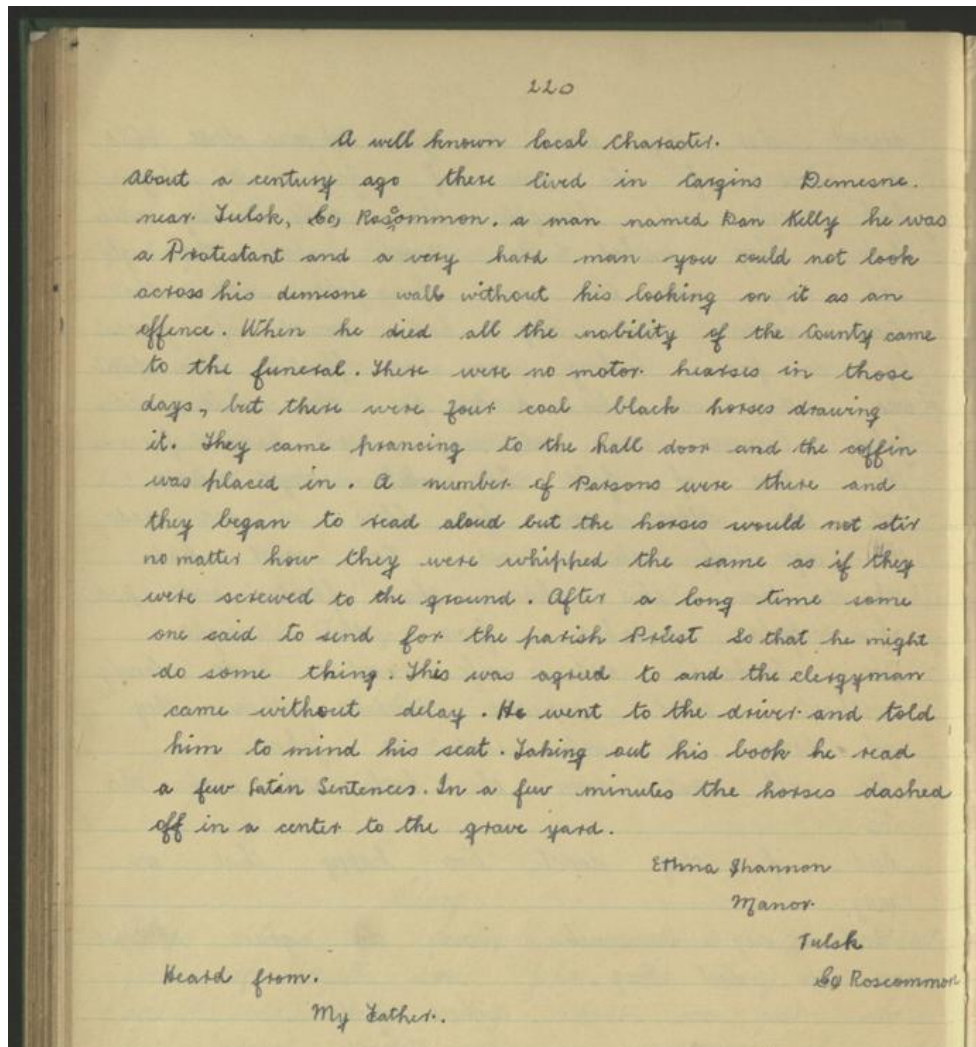 220
A well known local Character.
About a century ago there lived in Cargins Demesne.
near Tulsk, Co, Roscommon. a man named Dan Kelly he was
a Protestant and a very hard man you could not look
across his demesne wall without his looking on it as an
offence. When he died all the nobility of the County came
to the funeral. There were no motor hearses in those
days, but there were four coal black horses drawing
it. They came prancing to the hall door and the coffin
was placed in. A number of Parsons were there and
they began to read aloud but the horses would not stir
no matter how they were whipped the same as if they
were screwed to the ground. After a long time some
one said to send for the parish Priest So that he might
do some thing. This was agreed to and the clergyman
came without delay. He went to the driver and told
him to mind his seat. Taking out his book he read
a few Latin Sentences. In a few minutes the horses dashed
off in a center to the grave yard.
Ethna Shannon
Manor.
Tulsk
Co Roscommon
Heard from.
My Father.